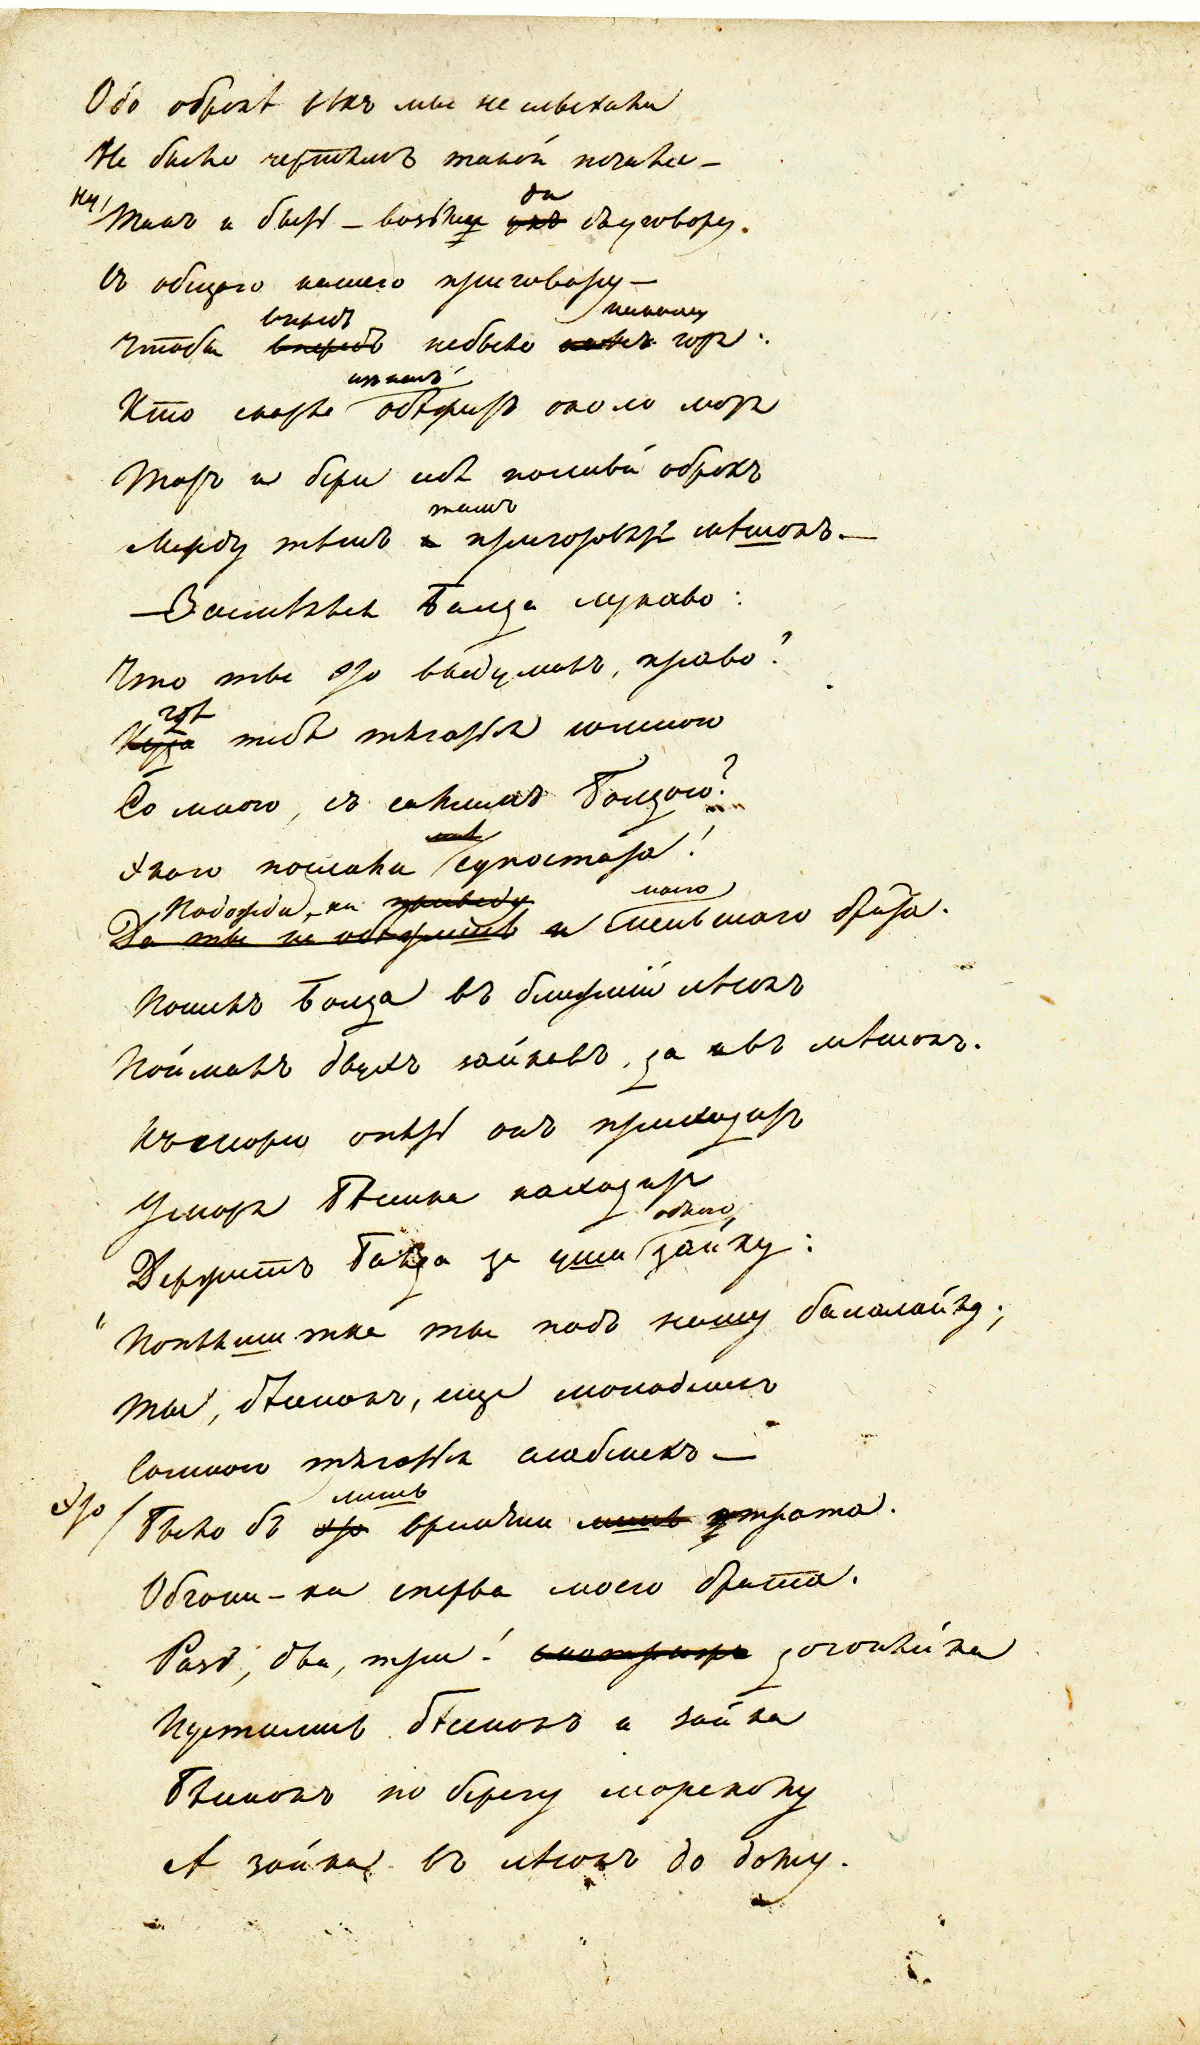 Объ оброкѣ вѣкъ мы не слыхали
Не было чертямъ такой печали —
Ну, Такъ и быть — возьми да съ уговору.
Съ общаго нашего приговору —
впредь никому
Чтобы впредь небыло горя:
изъ насъ
Кто скорѣе обѣжитъ около моря
Тотъ и бери себѣ полный оброкъ
тамъ
Между тѣмъ приготовятъ мѣшокъ. —
— Засмѣялся Балда лукаво:
Что ты это выдумалъ, право?
гдѣ
Куда тебѣ тягаться со мною
Со мною, съ самимъ Балдою?
Экого послали супостата!
Подожди-ка моего
Да ты не обѣжишь и меньшаго брата.
Пошелъ Балда въ ближній лѣсокъ
Поймалъ двухъ зайковъ, да въ мѣшокъ.
Къ морю опять онъ приходитъ
У моря бѣсенка находитъ
одного
Держитъ Балда за уши зайку:
"Попляши тка ты подъ нашу балалайку;
Ты, бѣсенокъ, еще молоденекъ
Со мною тягаться слабенекъ —
Это лишь
Было бъ это времени лишь трата.
Обгони-ка сперва моего брата.
Разъ, два, три! догоняй-ка
Пустились бѣсенокъ и зайка
Бѣсенокъ по берегу морскому
А зайка въ лѣсокъ до дому.